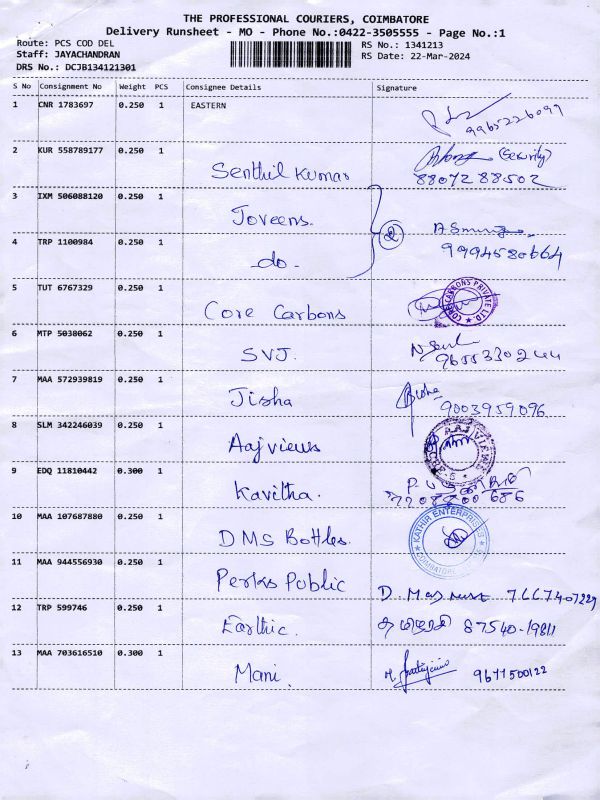 THE PROFESSIONAL COURIERS, COIMBATORE
Delivery Runsheet - MO - Phone No.:0422-3505555 - Page No.:1
Route: PCS COD DEL
RS No.: 1341213
Staff: JAYACHANDRAN
RS Date: 22-Mar-2024
DRS No.: DCJB134121301
S No Consignment No Weight PCS Consignee Details Signature
1 CNR 1783697 0.250 1 EASTERN
9965226099
2 KUR 558789177 0.250 1 Senthil Kumar (Security)
8807288502
3 IXM 506088120 0.250 1 Joveens.
4 TRP 1100984 0.250 1 -do- 2
9994580664
5 TUT 6767329 0.250 1 Core Carbons CORE CARBONS PRIVATE LTD.
6 MTP 5038062 0.250 1 SVJ.
9655330244
7 MAA 572939819 0.250 1 Jisha
9003959096
8 SLM 342246039 0.250 1 Aajviews
9 EDQ 11810442 0.300 1 Kavitha.
10 MAA 107687880 0.250 1 DMS Bottles. KATHIR ENTERPRISES COIMBATORE
11 MAA 944556930 0.250 1 Perks Public
7667407229
12 TRP 599746 0.250 1 Earthic. 87540-19811
13 MAA 703616510 0.300 1 Mani. 9677500122